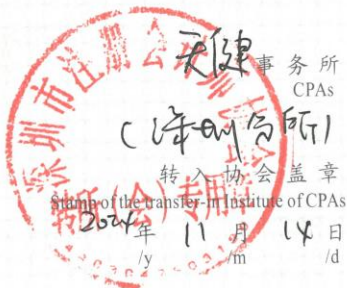 天健 事务所
CPAs
(深圳分所)
转入协会盖章
Stamp of the transfer-in Institute of CPAs
2024年 11月 14日
/y /m /d
深圳市注册会计师协会